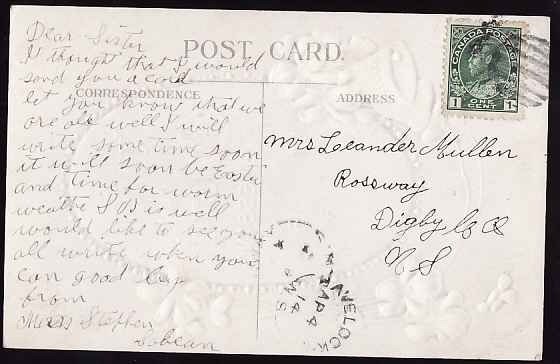 POST CARD.
CORRESPONDENCE
ADDRESS
Dear Sister
I thought that I would
send you a card
let you know that we
are all well I will
write some time soon
it will soon be Easter
and time for worm
weathe S B is well
would like to see you
all write when you
can good by
from
Mrs Stephen
CANADA POSTAGE
1 ONE CENT 1
Mrs Leander Mullen
Rossway
Digby Co
N S
AP 4
14